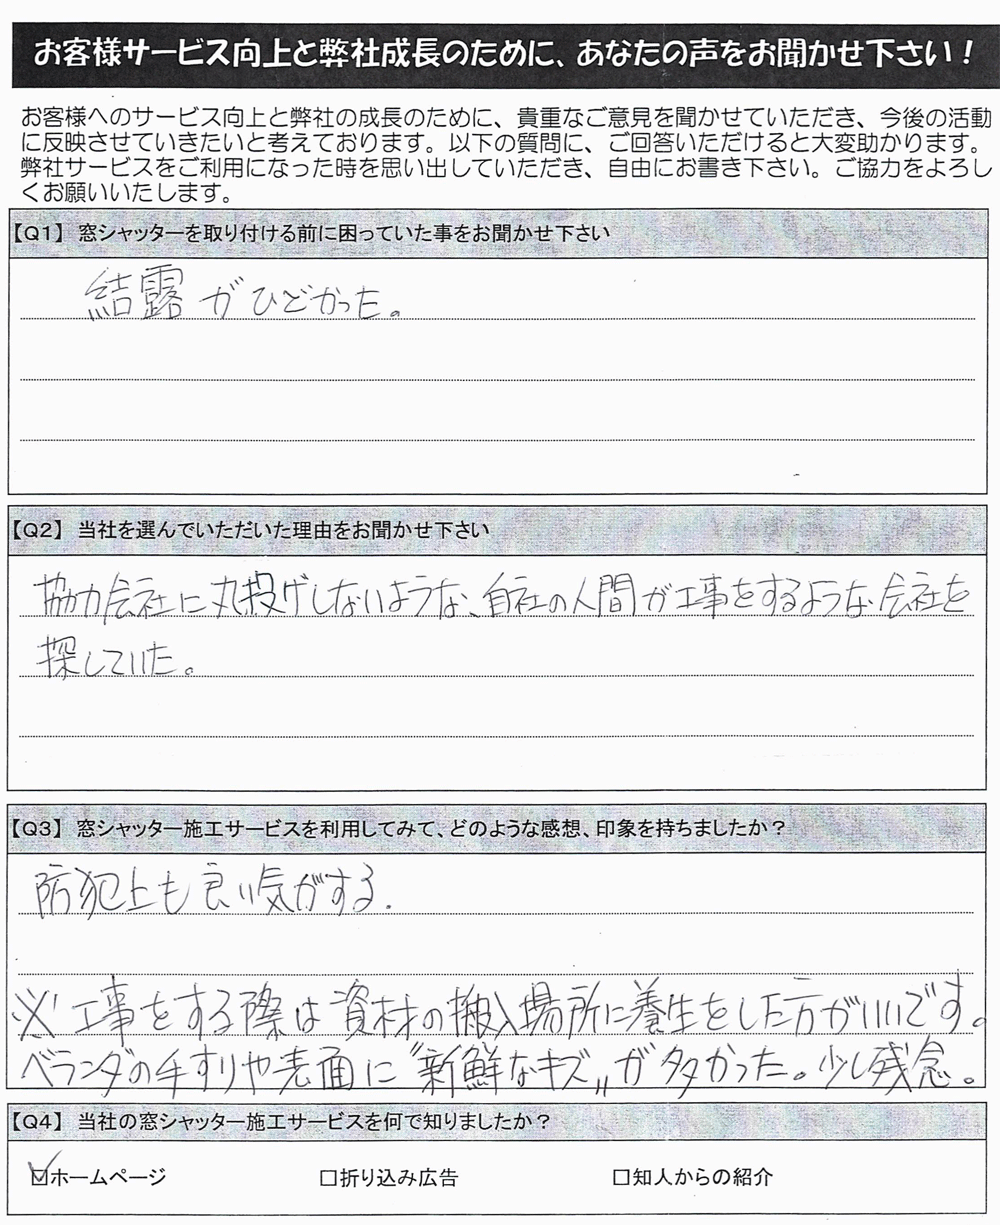 お客様サービス向上と弊社成長のために、あなたの声をお聞かせ下さい！
お客様へのサービス向上と弊社の成長のために、貴重なご意見を聞かせていただき、今後の活動
に反映させていきたいと考えております。以下の質問に、ご回答いただけると大変助かります。
弊社サービスをご利用になった時を思い出していただき、自由にお書き下さい。ご協力をよろし
くお願いいたします。
【Q1】 窓シャッターを取り付ける前に困っていた事をお聞かせ下さい
結露がひどかった。
【Q2】 当社を選んでいただいた理由をお聞かせ下さい
協力会社に丸投げしないような、自社の人間が工事をするような会社を
探していた。
【Q3】 窓シャッター施工サービスを利用してみて、どのような感想、印象を持ちましたか？
防犯上も良い気がする.
※工事をする際は資材の搬入場所に養生をした方がいいです。
ベランダの手すりや表面に〝新鮮なキズ〟が多かった。少し残念。
【Q4】 当社の窓シャッター施工サービスを何で知りましたか？
☑ホームページ □折り込み広告 □知人からの紹介